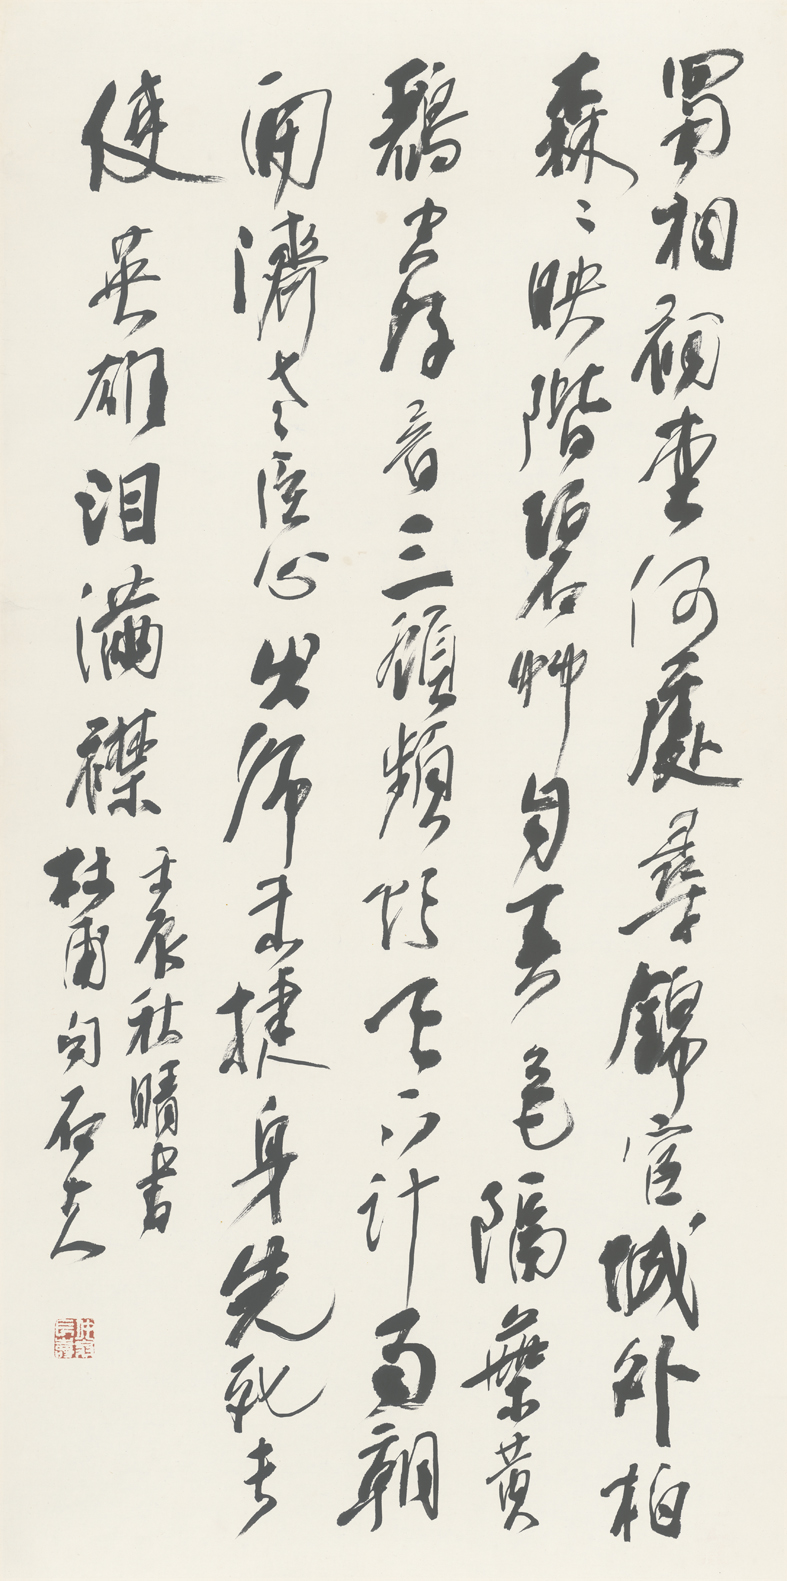 蜀相祠堂何處尋錦官城外柏
森〻映階碧艸自春色隔葉黃
鸝空好音三顧頻煩天下計兩朝
開濟老臣心出師未捷身先死長
使英雄泪滿襟
壬辰秋晴書
杜甫句石夫